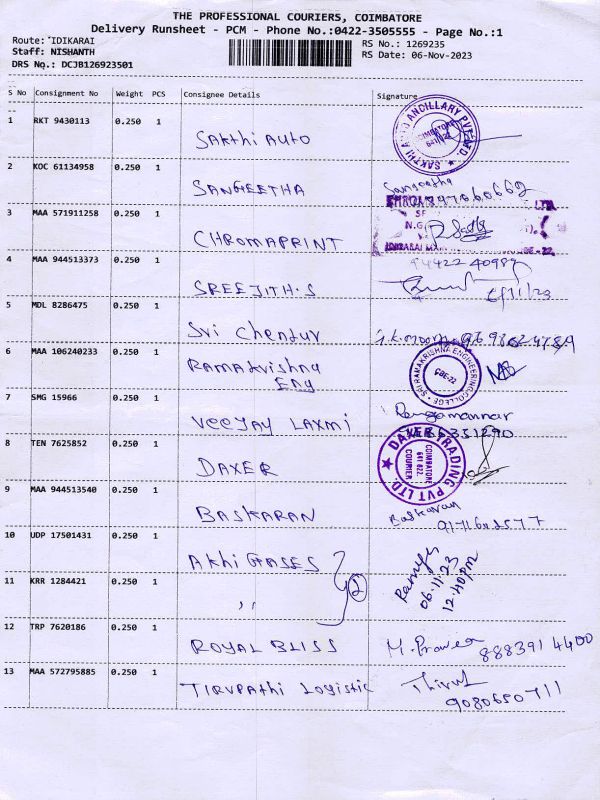 THE PROFESSIONAL COURIERS, COIMBATORE
Delivery Runsheet - PCM - Phone No.:0422-3505555 - Page No.:1
Route: IDIKARAI
Staff: NISHANTH
DRS No.: DCJB126923501
RS No.: 1269235
RS Date: 06-Nov-2023
S No Consignment No Weight PCS Consignee Details Signature
1 RKT 9430113 0.250 1 SAKthi AUTO
SAKTHI AUTO ANCILLARY PVT LTD.
COIMBATORE
2 KOC 61134958 0.250 1 SANGEETHA Sangeetha
3 MAA 571911258 0.250 1 CHROMAPRINT
4 MAA 944513373 0.250 1 SREEJITH.S
5 MDL 8286475 0.250 1 Sri Chendur
6 MAA 106240233 0.250 1 RAMAKrishna Eng
SRI RAMAKRISHNA ENGINEERING COLLEGE
CBE-22
7 SMG 15966 0.250 1 VEEJAY LAXMI Rengamannar
8 TEN 7625852 0.250 1 DAXER
DAXER TRADING PVT LTD.
COIMBATORE
641 022.
COURIER
9 MAA 944513540 0.250 1 BASKARAN Baskaran
10 UDP 17501431 0.250 1 AKhi GASES
11 KRR 1284421 0.250 1 ,, 2
06.11.23
12.40pm
12 TRP 7620186 0.250 1 ROYAL BLISS 8883914400
13 MAA 572795885 0.250 1 TIRUPAthi Logistic 9080650711